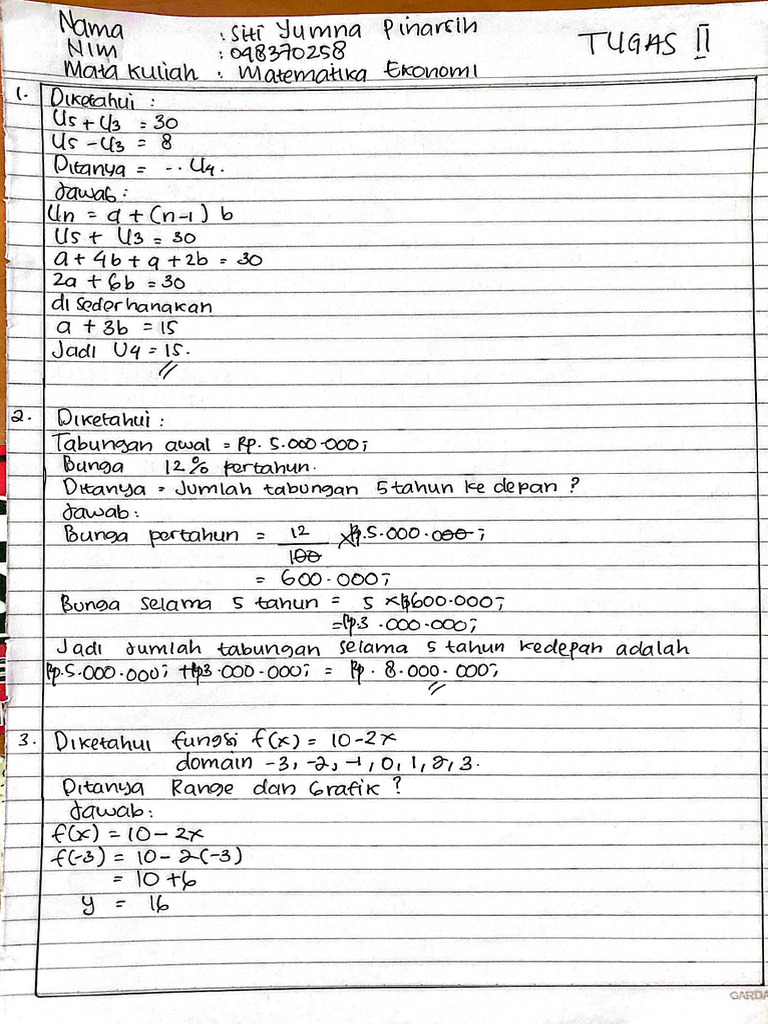 Nama : Siti Yumna Pinarsih
NIM : 048370258
TUGAS II
Mata kuliah : Matematika Ekonomi
1. Diketahui :
U5 + U3 = 30
U5 - U3 = 8
Ditanya = -.. U4.
Jawab :
Un = a + (n-1) b
U5 + U3 = 30
a + 4b + a + 2b = 30
2a + 6b = 30
di sederhanakan
a + 3b = 15
Jadi U4 = 15.
2. Diketahui :
Tabungan awal = Rp. 5.000.000;
Bunga 12% pertahun.
Ditanya = Jumlah tabungan 5 tahun ke depan ?
Jawab :
Bunga pertahun = 12/100 x Rp.5.000.000;
= 600.000;
Bunga selama 5 tahun = 5 x Rp600.000;
= Rp.3.000.000;
Jadi Jumlah tabungan selama 5 tahun kedepan adalah
Rp.5.000.000; + Rp3.000.000; = Rp. 8.000.000;
3. Diketahui fungsi f(x) = 10-2x
domain -3, -2, -1, 0, 1, 2, 3.
Ditanya Range dan Grafik ?
Jawab :
f(x) = 10 - 2x
f(-3) = 10 - 2(-3)
= 10 + 6
y = 16
GARDA